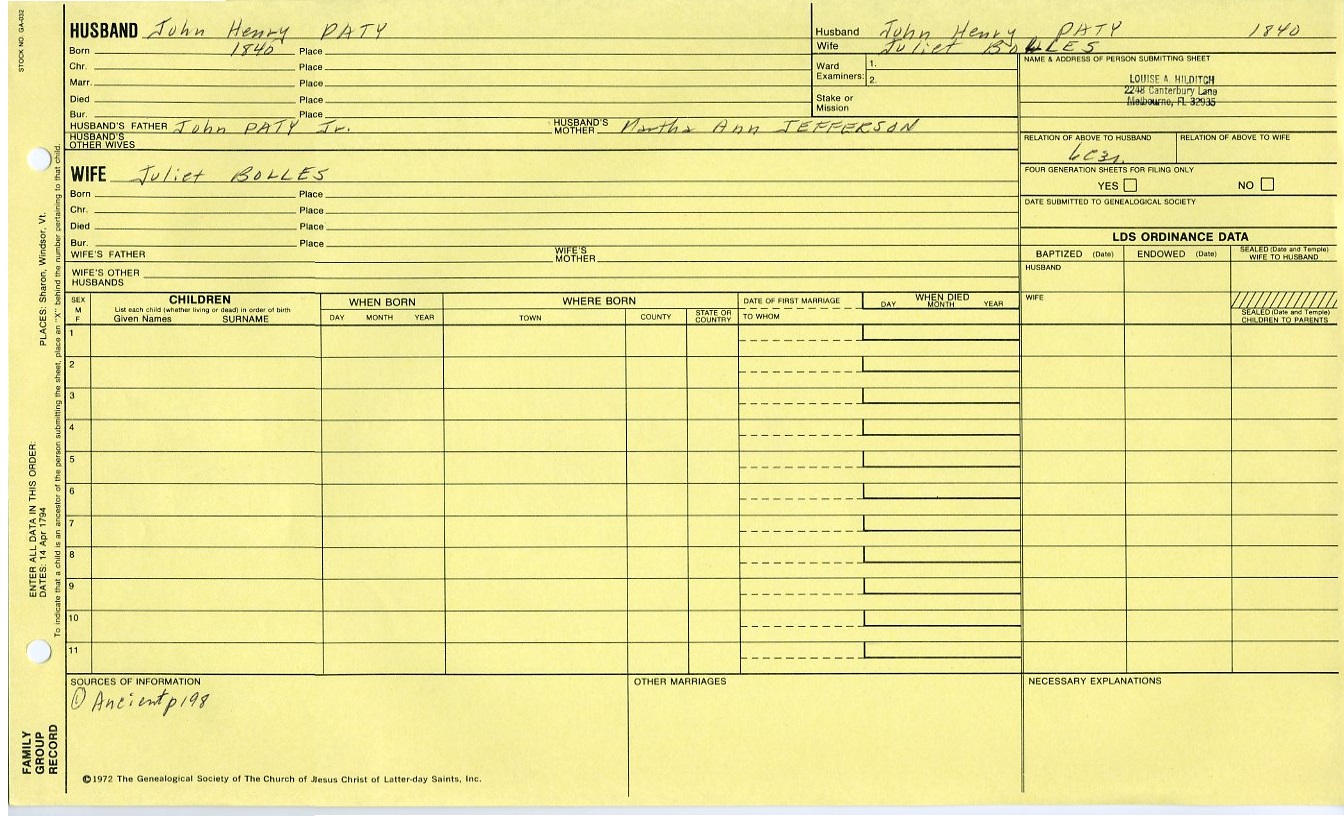 STOCK NO. GA-032
HUSBAND John Henry PATY
Born 1840 Place
Chr. Place
Marr. Place
Died Place
Bur. Place
HUSBAND'S FATHER John PATY Jr. HUSBAND'S MOTHER Martha Ann JEFFERSON
HUSBAND'S OTHER WIVES
Husband John Henry PATY 1840
Wife Juliet BOLLES
Ward Examiners: 1.
2.
Stake or Mission
NAME & ADDRESS OF PERSON SUBMITTING SHEET
LOUISE A. HILDITCH
2248 Canterbury Lane
Melbourne, FL 32935
RELATION OF ABOVE TO HUSBAND RELATION OF ABOVE TO WIFE
FOUR GENERATION SHEETS FOR FILING ONLY
YES NO
DATE SUBMITTED TO GENEALOGICAL SOCIETY
WIFE Juliet BOLLES
Born Place
Chr. Place
Died Place
Bur. Place
WIFE'S FATHER WIFE'S MOTHER
WIFE'S OTHER HUSBANDS
LDS ORDINANCE DATA
BAPTIZED (Date) ENDOWED (Date) SEALED (Date and Temple) WIFE TO HUSBAND
HUSBAND
WIFE
SEALED (Date and Temple) CHILDREN TO PARENTS
SEX M F CHILDREN WHEN BORN WHERE BORN DATE OF FIRST MARRIAGE WHEN DIED
List each child (whether living or dead) in order of birth
Given Names SURNAME DAY MONTH YEAR TOWN COUNTY STATE OR COUNTRY TO WHOM DAY MONTH YEAR
1
2
3
4
5
6
7
8
9
10
11
SOURCES OF INFORMATION OTHER MARRIAGES NECESSARY EXPLANATIONS
① Ancient p198
©1972 The Genealogical Society of The Church of Jesus Christ of Latter-day Saints, Inc.
FAMILY GROUP RECORD
ENTER ALL DATA IN THIS ORDER:
DATES: 14 Apr 1794
PLACES: Sharon, Windsor, Vt.
To indicate that a child is an ancestor of the person submitting the sheet, place an "X" behind the number pertaining to that child.